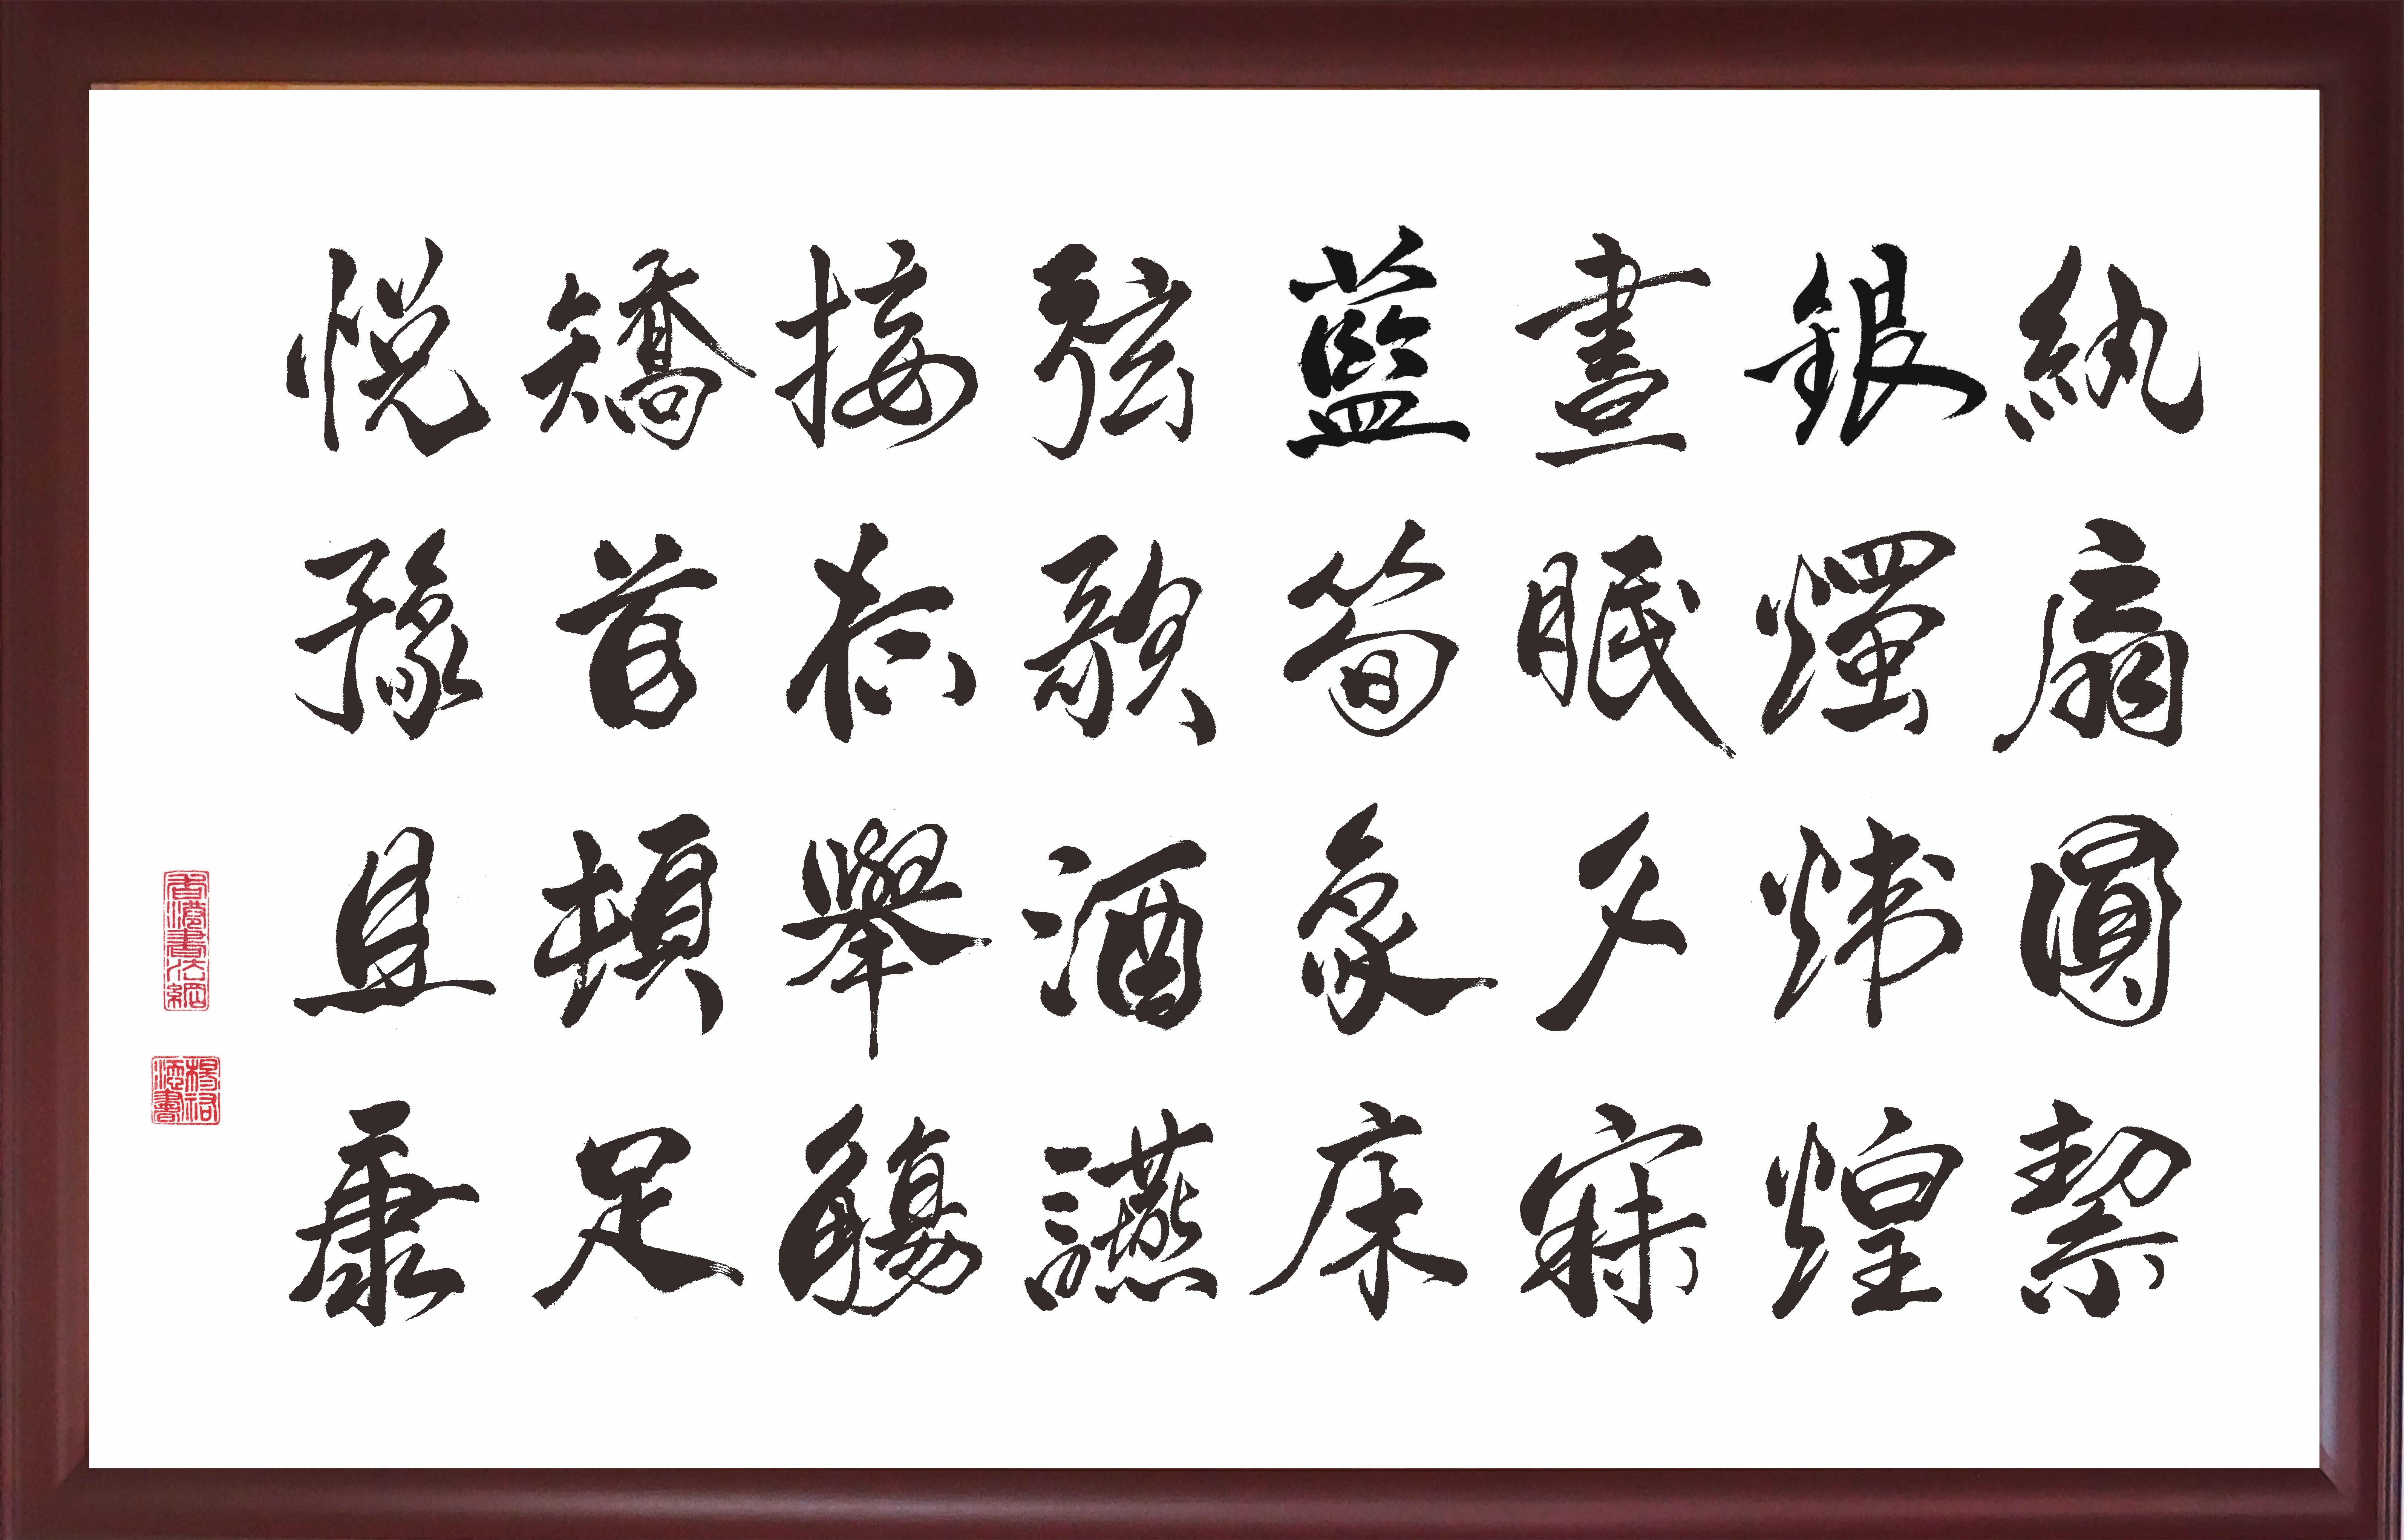 紈扇圓絜
銀燭煒煌
晝眠夕寐
藍筍象床
弦歌酒讌
接杯舉觴
矯首頓足
悅豫且康